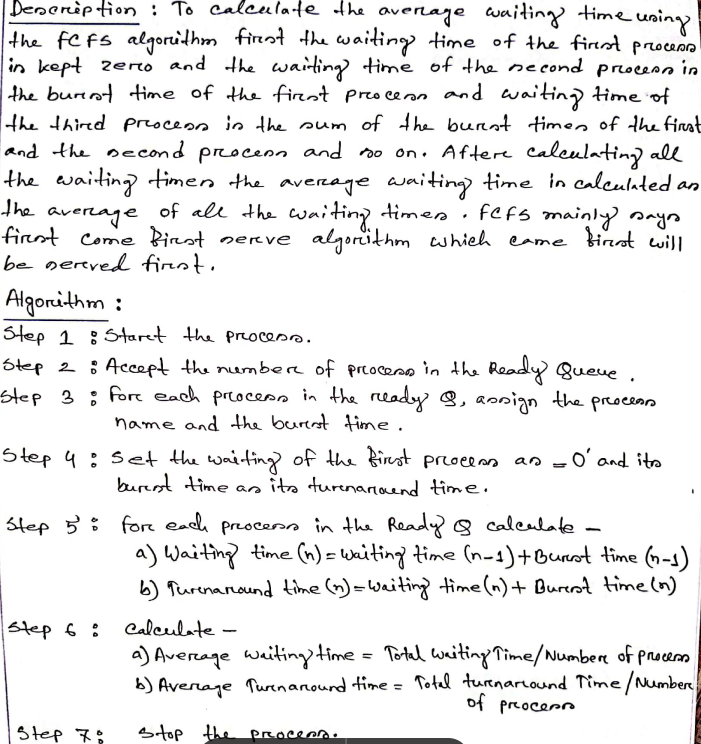 Description : To calculate the average waiting time using
the FCFS algorithm first the waiting time of the first process
is kept zero and the waiting time of the second process is
the burst time of the first process and waiting time of
the third process is the sum of the burst times of the first
and the second process and so on. After calculating all
the waiting times the average waiting time is calculated as
the average of all the waiting times. FCFS mainly says
first come first serve algorithm which came first will
be served first.
Algorithm :
Step 1 : Start the process.
Step 2 : Accept the number of process in the Ready Queue.
Step 3 : For each process in the ready Q, assign the process
name and the burst time.
Step 4 : Set the waiting of the first process as = 0' and its
burst time as its turnaround time.
Step 5 : for each process in the Ready Q calculate —
a) Waiting time (n) = waiting time (n-1) + Burst time (n-1)
b) Turnaround time (n) = waiting time (n) + Burst time (n)
Step 6 : Calculate —
a) Average waiting time = Total waiting Time / Number of process
b) Average Turnaround time = Total turnaround Time / Number
of process
Step 7 : Stop the process.